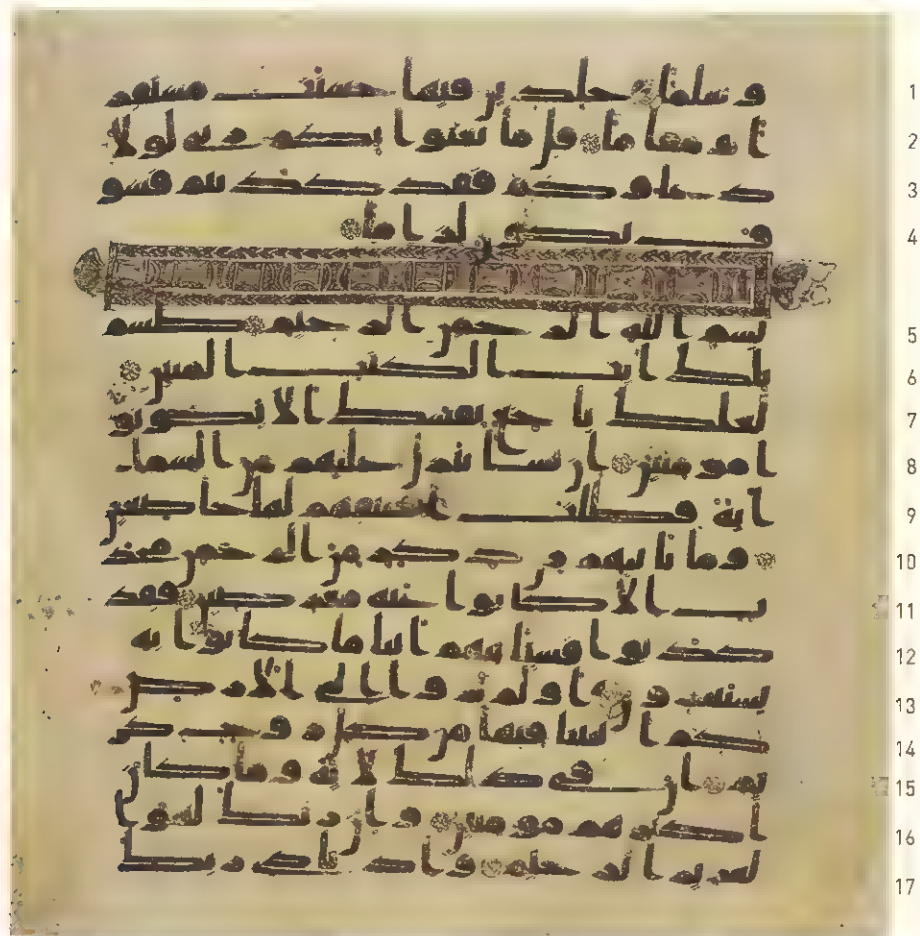 وسلما خلدين فيها حسنت مستقر 1
ا ومقاما قل ما يعبوا بكم ربي لولا 2
دعاوكم فقد كذبتم فسو 3
ف يكون لزاما 4
بسم الله الرحمن الرحيم طسم 5
تلك ايت الكتب المبين 6
لعلك باخع نفسك الا يكونو 7
ا مومنين ان نشا ننزل عليهم من السما 8
اية فظلت اعنقهم لها خضعين 9
وما ياتيهم من ذكر من الرحمن محد 10
ث الا كانوا عنه معرضين فقد 11
كذبوا فسياتيهم انبا ما كانوا به 12
يستهزون اولم يروا الى الارض 13
كم انبتنا فيها من كل زوج كر 14
يم ان في ذلك لاية وما كان 15
اكثرهم مومنين وان ربك لهو ا 16
لعزيز الرحيم واذ نادى ربك 17